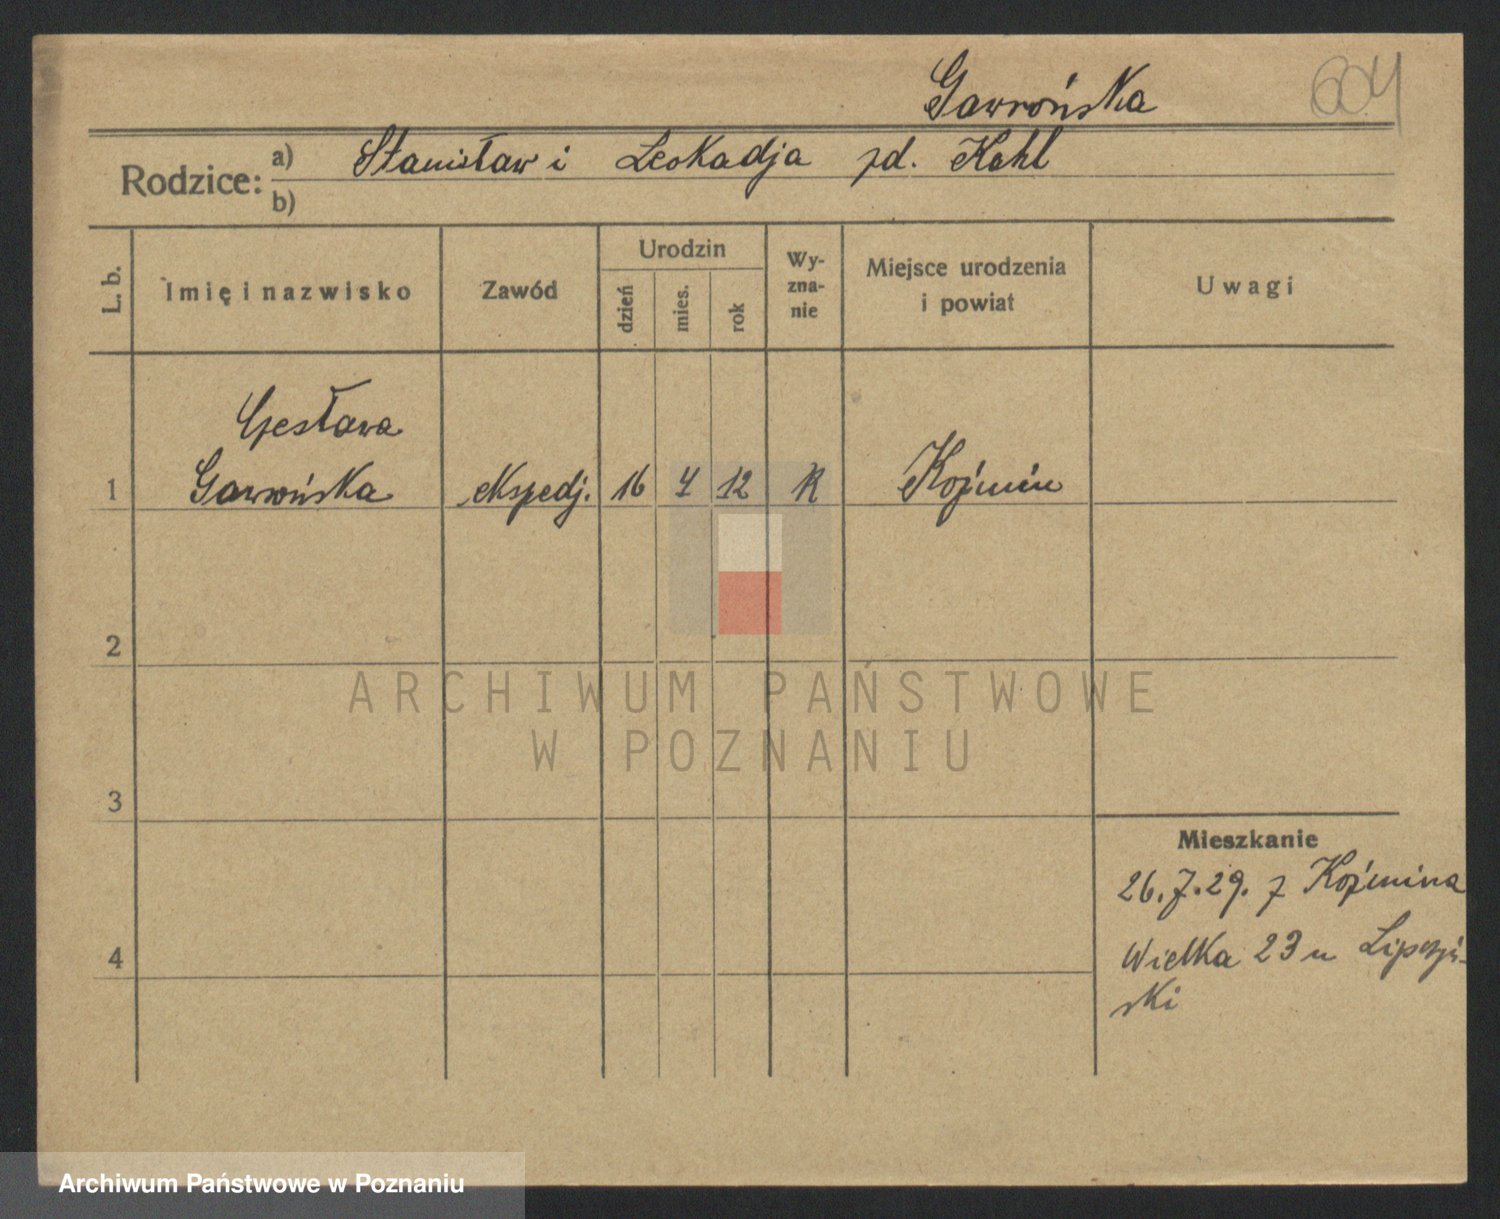 Gawrońska
604
Rodzice: a) Stanisław i Leokadja zd. Kohl
b)
L. b.
Imię i nazwisko
Zawód
Urodzin
dzień
mies.
rok
Wy-
zna-
nie
Miejsce urodzenia
i powiat
Uwagi
Czesława
1 Gawrońska ekspedj. 16 4 12 R Koźmin
2
3
4
Mieszkanie
26.7.29. z Koźmina
Wielka 23 u Lipczyń-
ski
ARCHIWUM PAŃSTWOWE
W POZNANIU
Archiwum Państwowe w Poznaniu